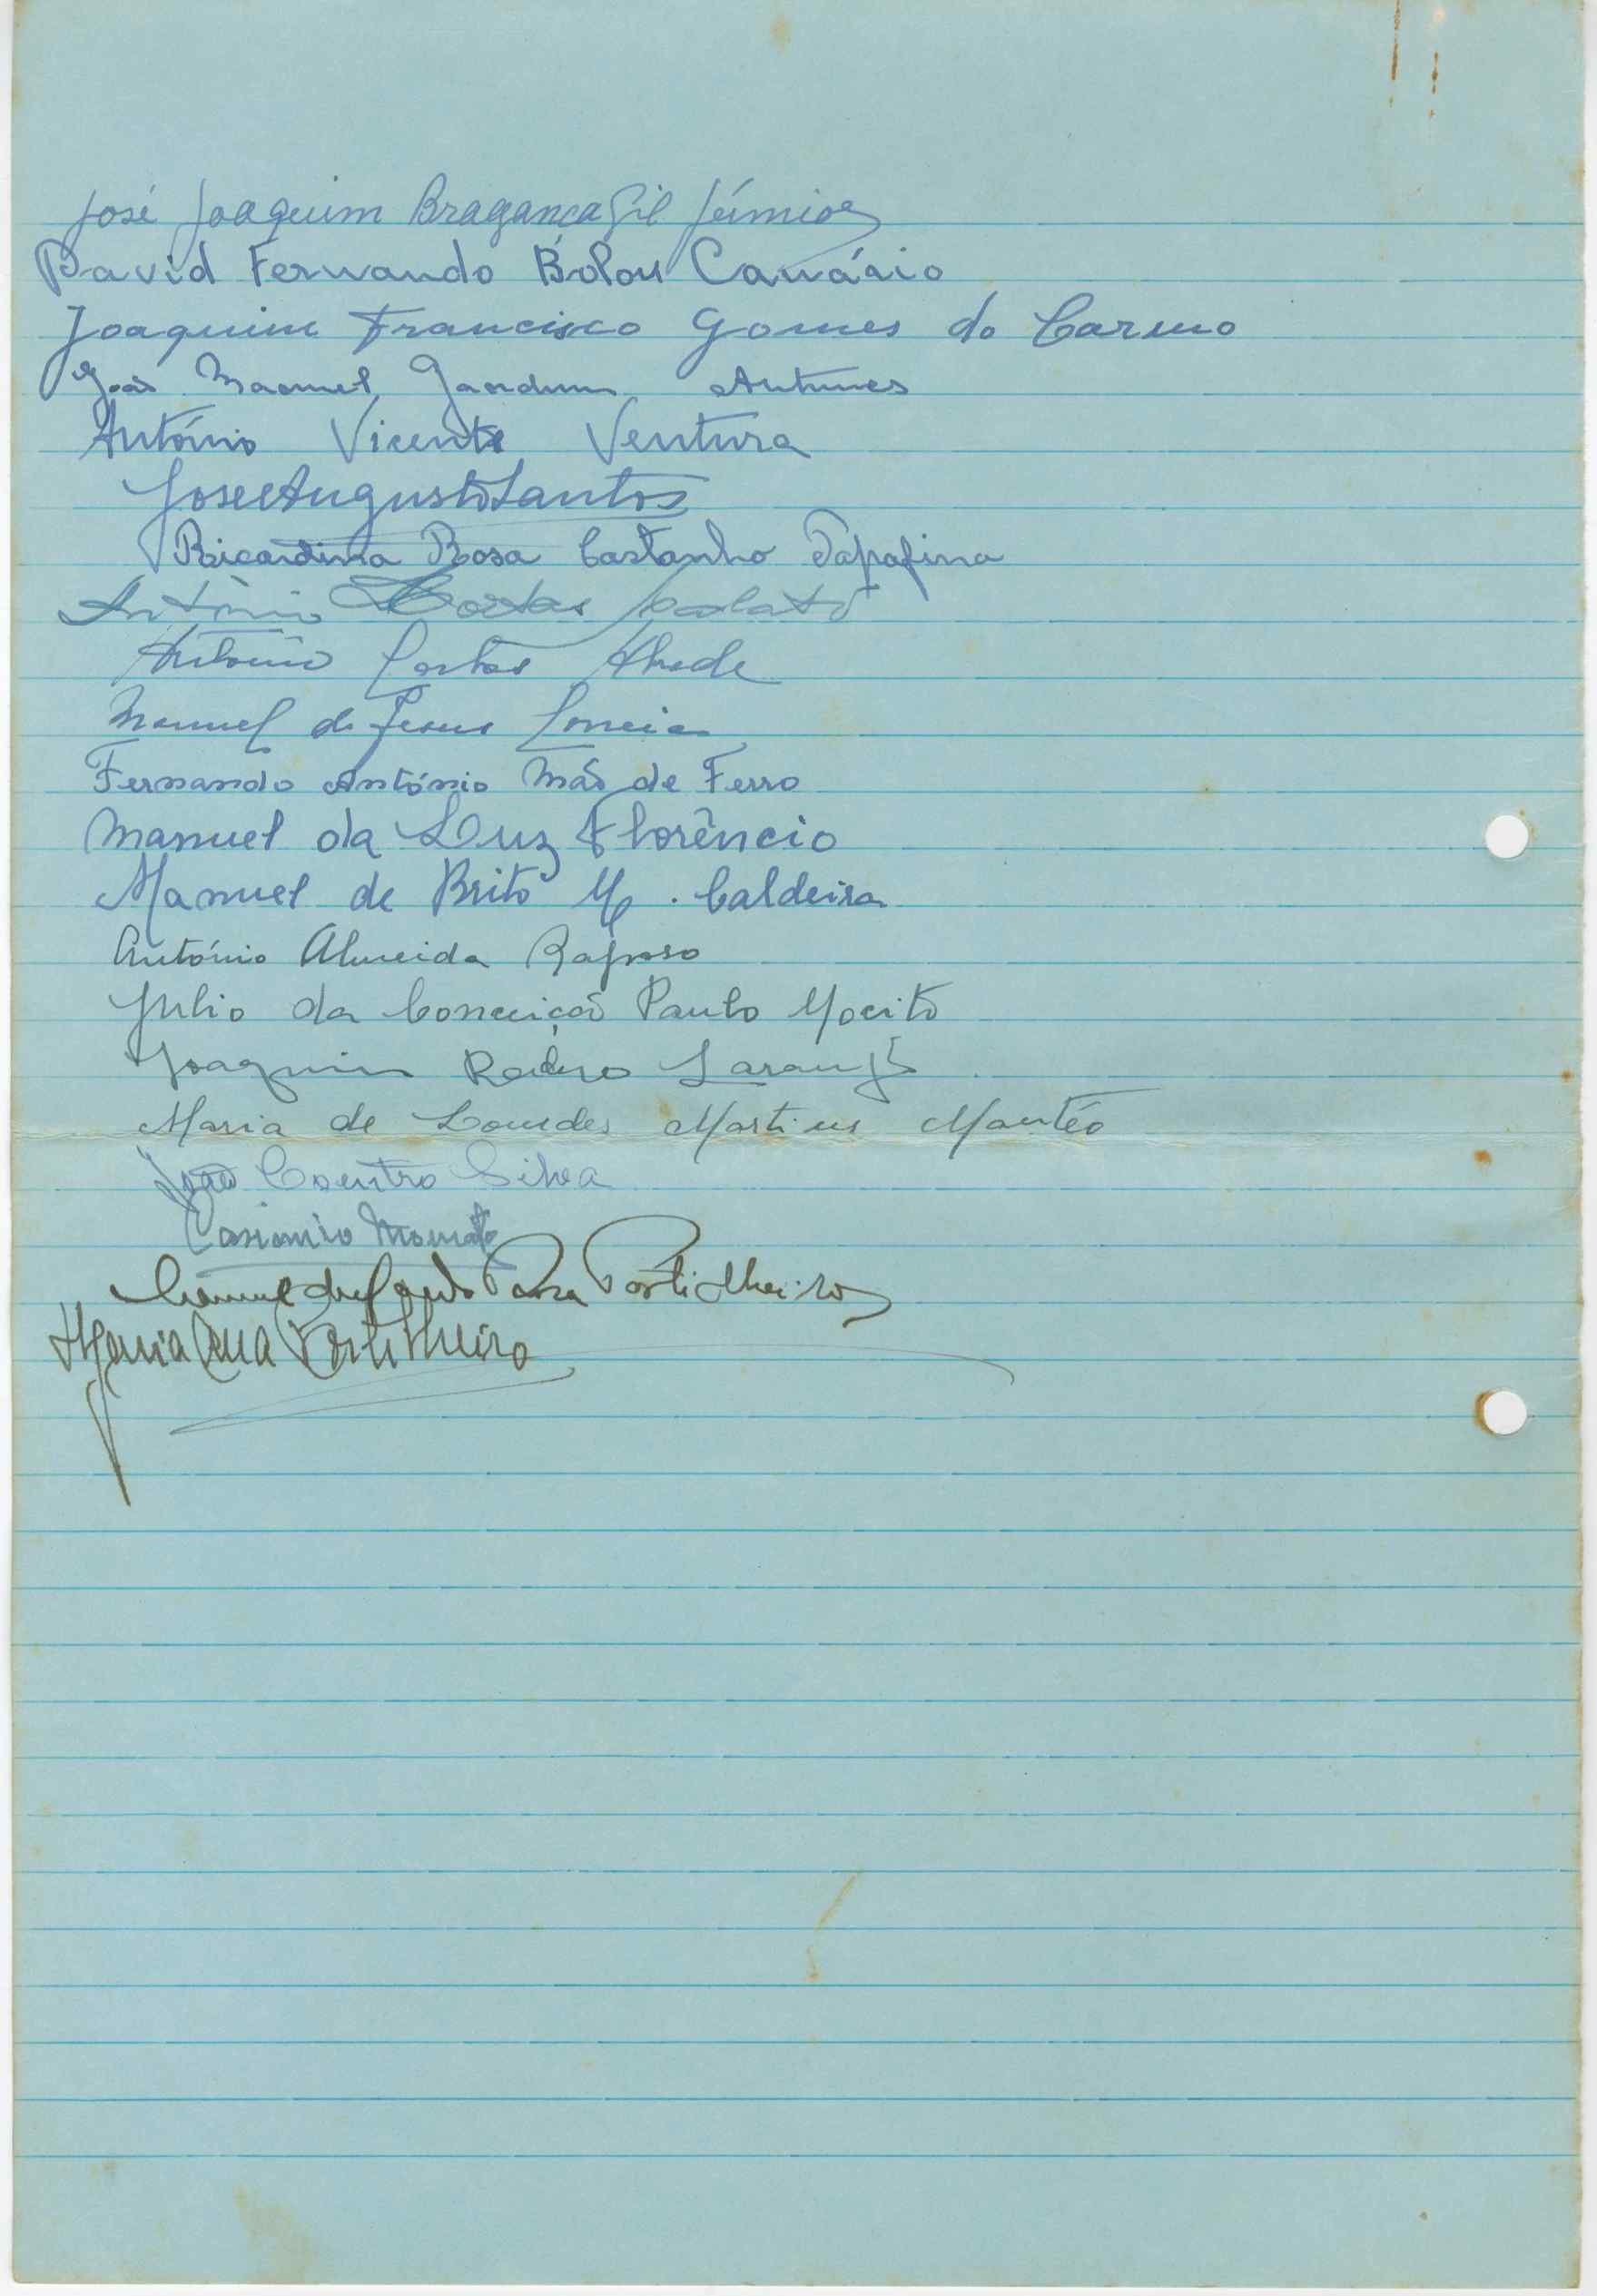 José Joaquim Bragança Gil Júnior
David Fernando Bolou Canário
Joaquim Francisco Gomes do Carmo
João Manuel Gardum Antunes
António Vicente Ventura
José Augusto Santos
Ricardina Rosa Castanho Tapafina
António
António Cortes
Manuel de Jesus Correia
Fernando António Mão de Ferro
Manuel da Luz Florêncio
Manuel de Brito M. Caldeira
António Almeida Raposo
Julio da Conceição Paulo Mocito
Joaquim Laranjo
Maria de Lourdes Martins Mantéo
João Coentro Silva
Casimiro
Manuel Rosa Portilheiro
Maria Portilheiro